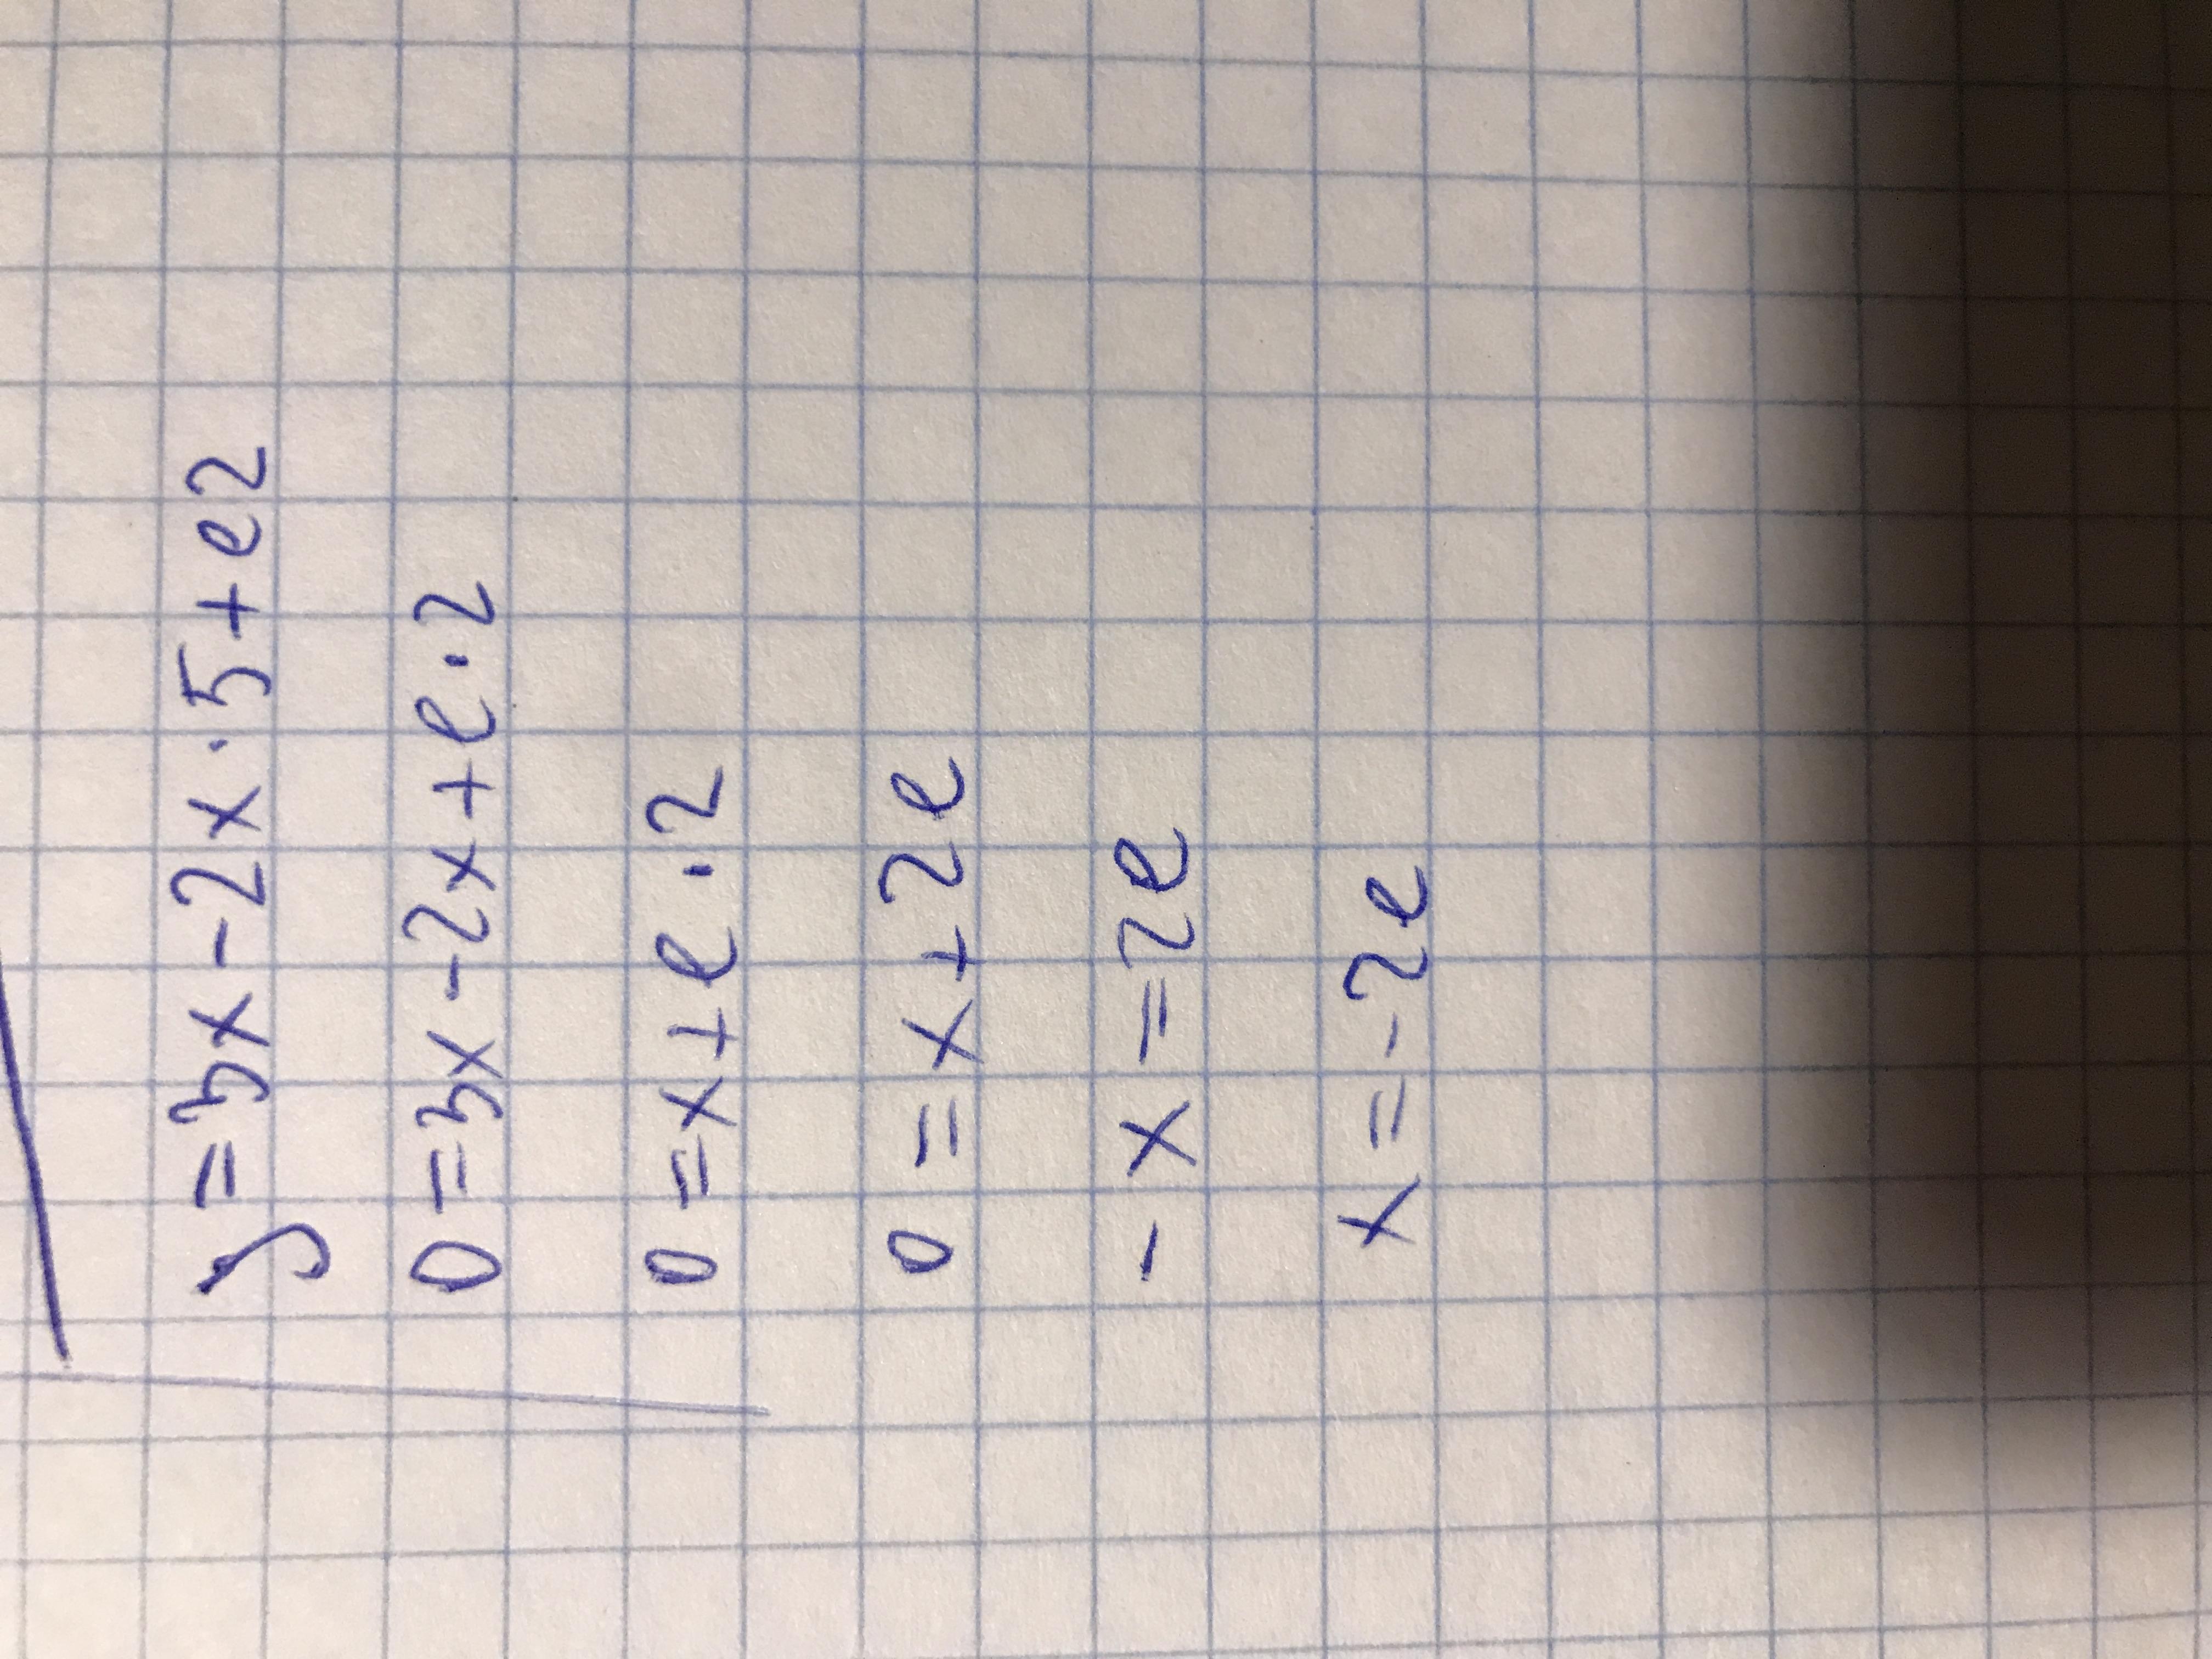 y=3x-2x·5+e2
0=3x-2x+e·2
0=x+e·2
0=x+2e
-x=2e
x=-2e